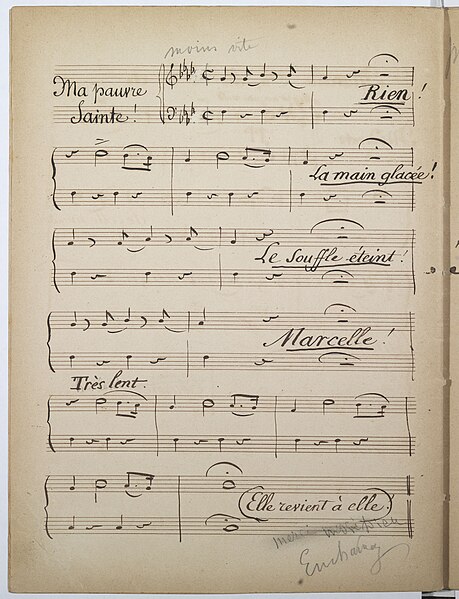 moins vite
Ma pauvre
Sainte!
Rien!
La main glacée!
Le Souffle éteint!
Marcelle!
Très lent.
Elle revient à elle!
merci